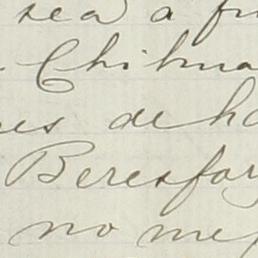 sea a fu
Chihua
es de ha
Beresfor
no me